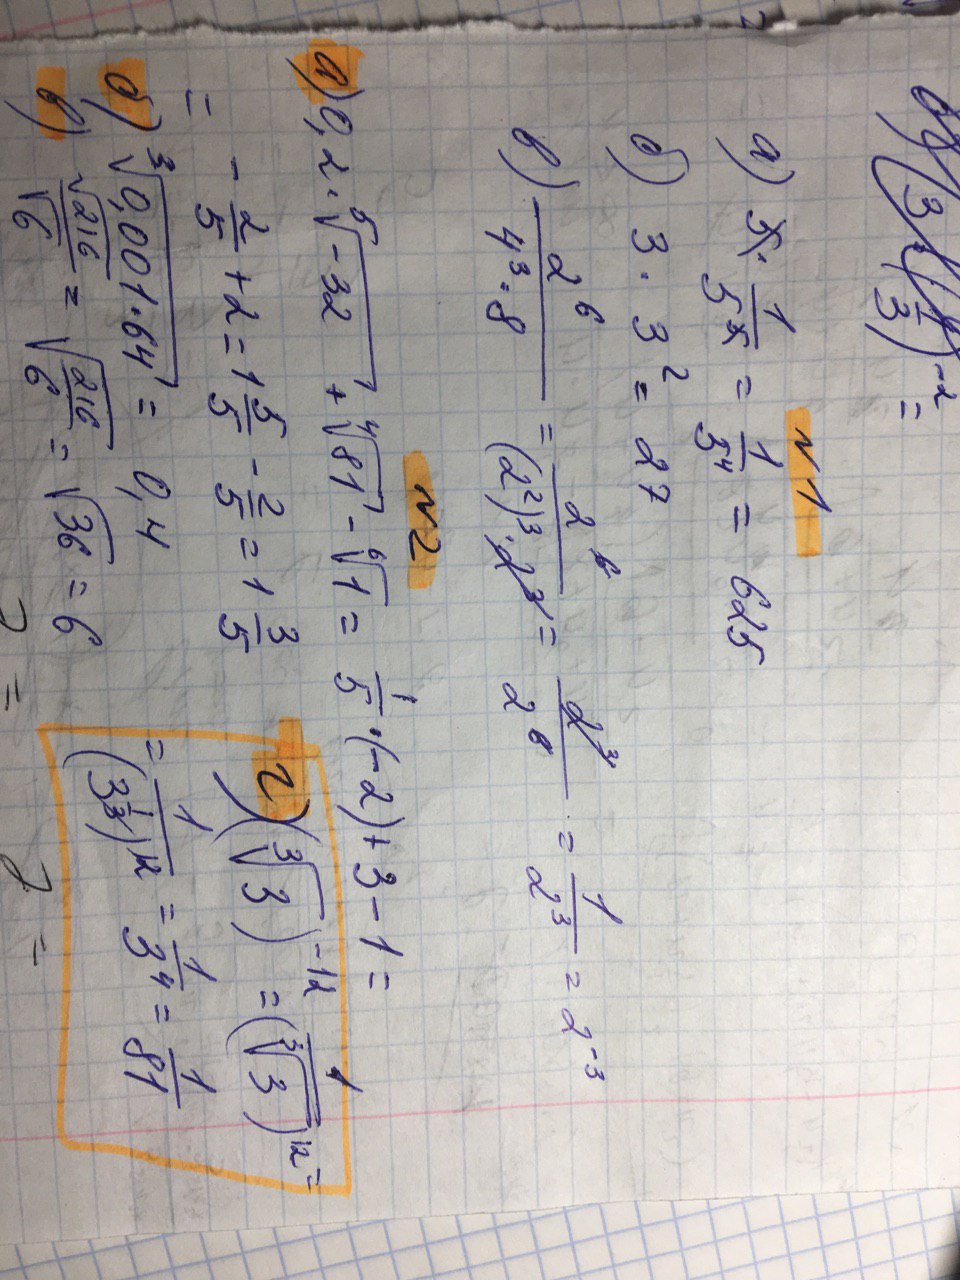 №1
а) 5 · 1/5⁵ = 1/5⁴ = 625
б) 3 · 3² = 27
в) 2⁶/(4³·8) = 2⁶/((2²)³·2³) = 2³/2⁶ = 1/2³ = 2⁻³
№2
а) 0,2·⁵√-32 + ⁴√81 - ⁶√1 = 1/5·(-2)+3-1=
= -2/5+2=1 5/5 - 2/5 = 1 3/5
б) ³√0,001·64 = 0,4
в) √216/√6 = √(216/6) = √36 = 6
г) (³√3)⁻¹² = 1/(³√3)¹² =
= 1/(3^(1/3))¹² = 1/3⁴ = 1/81